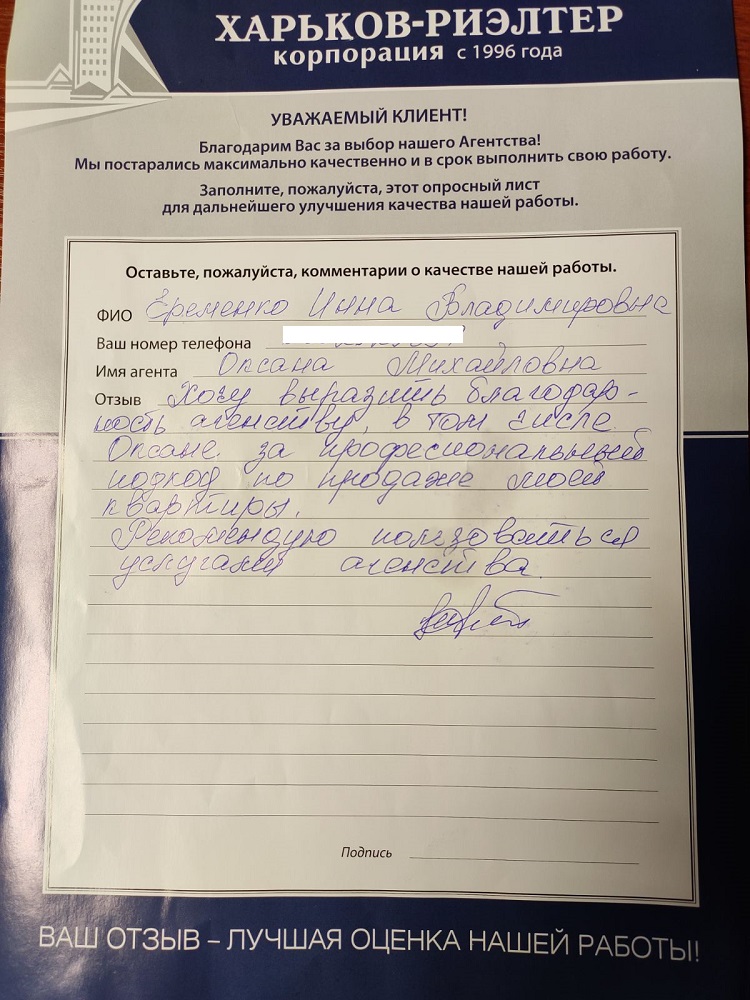 ХАРЬКОВ-РИЭЛТЕР
корпорация с 1996 года
УВАЖАЕМЫЙ КЛИЕНТ!
Благодарим Вас за выбор нашего Агентства!
Мы постарались максимально качественно и в срок выполнить свою работу.
Заполните, пожалуйста, этот опросный лист
для дальнейшего улучшения качества нашей работы.
Оставьте, пожалуйста, комментарии о качестве нашей работы.
ФИО Еременко Инна Владимировна
Ваш номер телефона
Имя агента Оксана Михайловна
Отзыв Хочу выразить благодар-
ность агенству, в том числе
Оксане за професиональный
подход по продаже моей
квартиры.
Рекомендую пользоваться
услугами агенства.
Подпись
ВАШ ОТЗЫВ – ЛУЧШАЯ ОЦЕНКА НАШЕЙ РАБОТЫ!